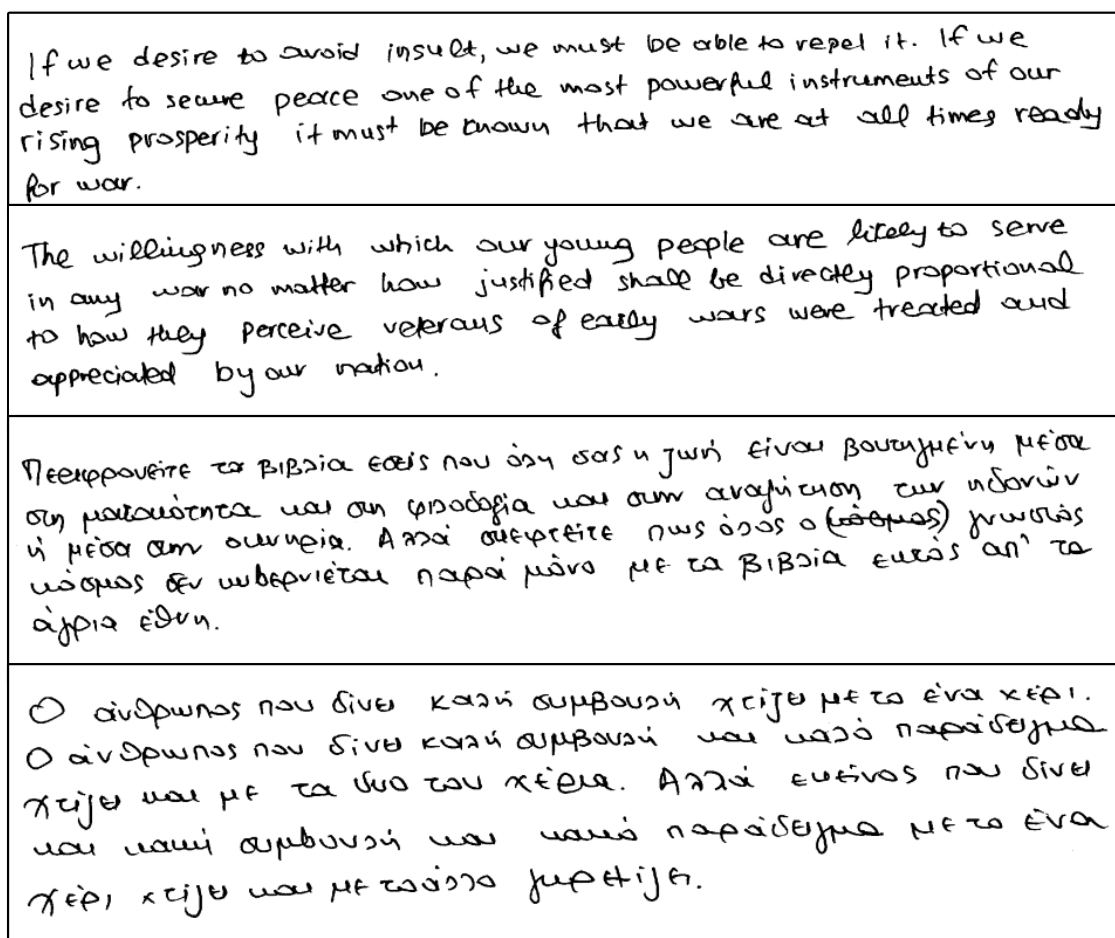 If we desire to avoid insult, we must be able to repel it. If we
desire to secure peace one of the most powerful instruments of our
rising prosperity it must be known that we are at all times ready
for war.
The willingness with which our young people are likely to serve
in any war no matter how justified shall be directly proportional
to how they perceive veterans of early wars were treated and
appreciated by our nation.
Περιφρονείτε τα βιβλία εσείς που όλη σας η ζωή είναι βουτηγμένη μέσα
στη ματαιότητα και στη φιλοδοξία και στην αναζήτηση των ηδονών
ή μέσα στην οκνηρία. Αλλά σκεφτείτε πως όλος ο (κόσμος) γνωστός
κόσμος δεν κυβερνιέται παρά μόνο με τα βιβλία εκτός απ' τα
άγρια έθνη.
Ο άνθρωπος που δίνει καλή συμβουλή χτίζει με το ένα χέρι.
Ο άνθρωπος που δίνει καλή συμβουλή και καλό παράδειγμα
χτίζει και με τα δυο του χέρια. Αλλά εκείνος που δίνει
και κακή συμβουλή και κακό παράδειγμα με το ένα
χέρι χτίζει και με το άλλο γκρεμίζει.